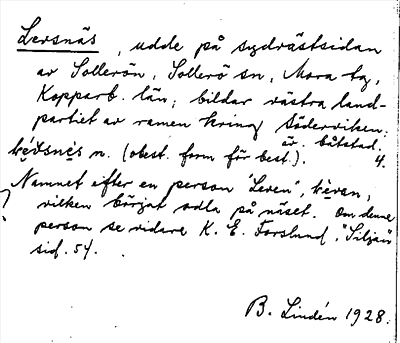 Lersnäs, udde på sydvästsidan
av Sollerön, Sollerö sn, Mora tg,
Kopparb. län; bildar västra land-
partiet av ramen kring Söderviken;
är. båtstad.
n. (obest. form för best.). 4.
Namnet efter en person "Leren",
vilken börjat odla på näset. Om denne
person se vidare K. E. Forslund, "Siljan"
sid. 54.
B. Lindén 1928.